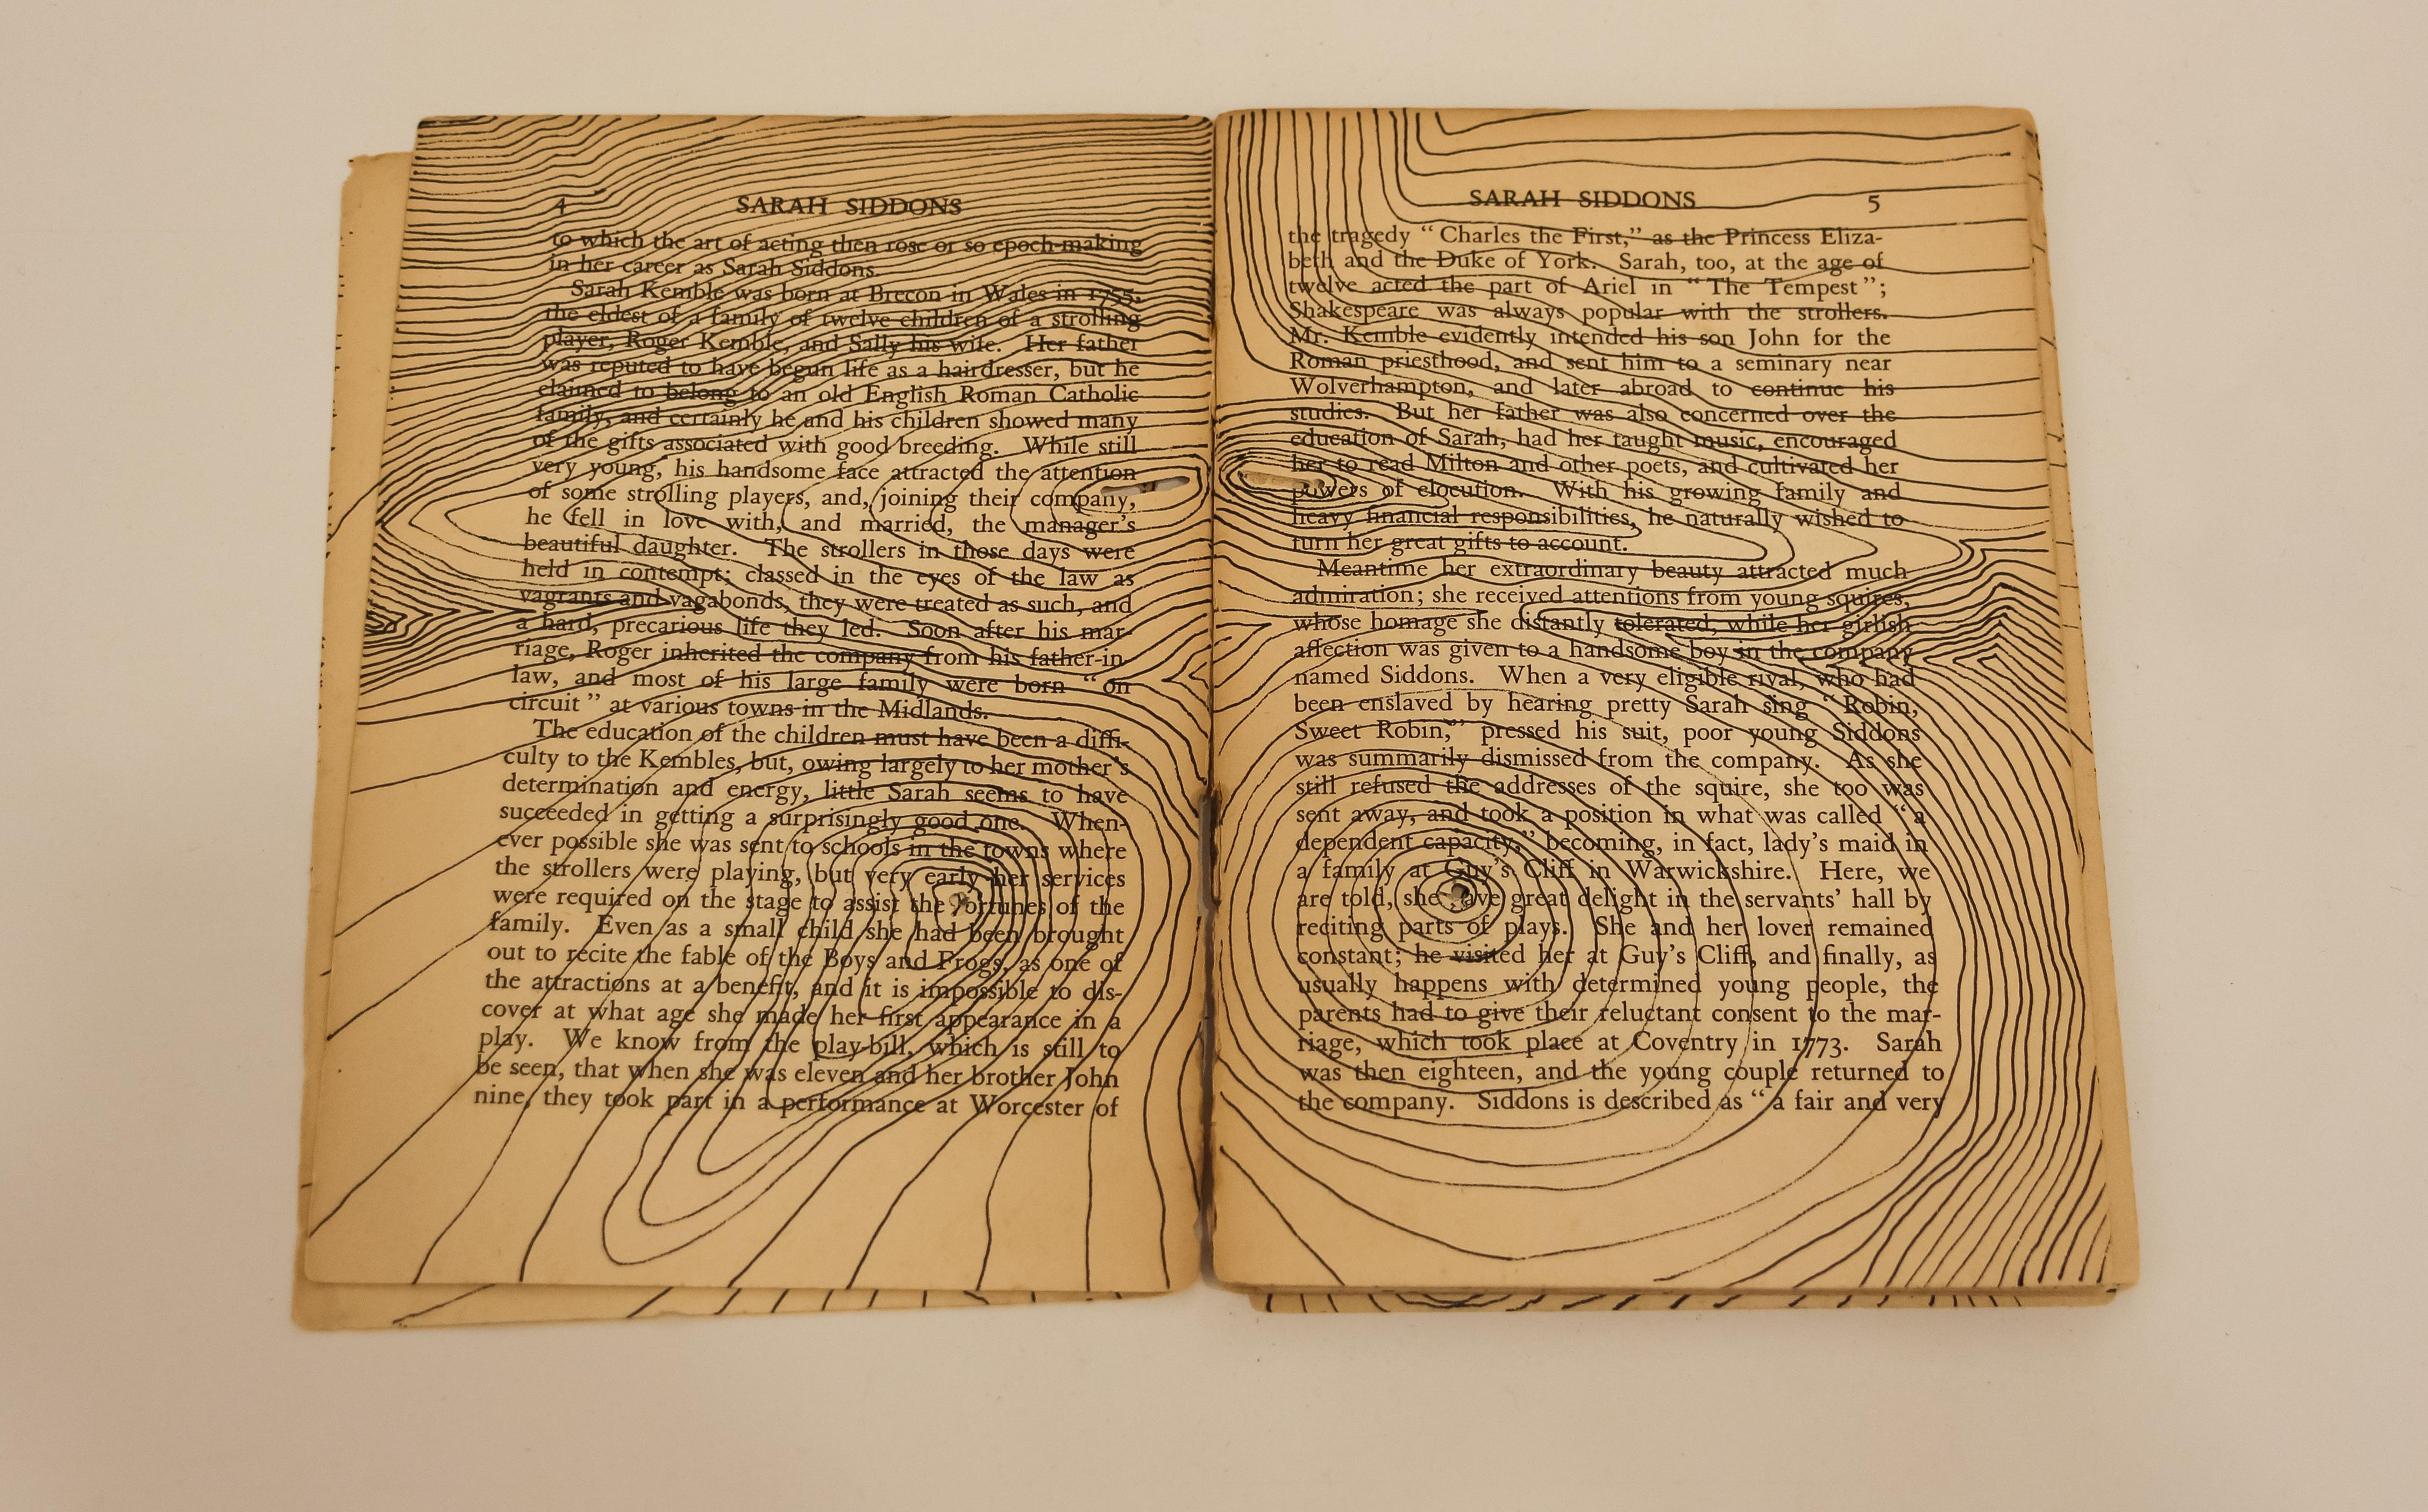 4 SARAH SIDDONS
to which the art of acting then rose or so epoch-making
in her career as Sarah Siddons.
Sarah Kemble was born at Brecon in Wales in 1755,
the eldest of a family of twelve children of a strolling
player, Roger Kemble, and Sally his wife. Her father
was reputed to have begun life as a hairdresser, but he
claimed to belong to an old English Roman Catholic
family, and certainly he and his children showed many
of the gifts associated with good breeding. While still
very young, his handsome face attracted the attention
of some strolling players, and, joining their company,
he fell in love with, and married, the manager's
beautiful daughter. The strollers in those days were
held in contempt; classed in the eyes of the law as
vagrants and vagabonds, they were treated as such, and
a hard, precarious life they led. Soon after his mar-
riage, Roger inherited the company from his father-in-
law, and most of his large family were born "on
circuit" at various towns in the Midlands.
The education of the children must have been a diffi-
culty to the Kembles, but, owing largely to her mother's
determination and energy, little Sarah seems to have
succeeded in getting a surprisingly good one. When-
ever possible she was sent to schools in the towns where
the strollers were playing, but very early her services
were required on the stage to assist the fortunes of the
family. Even as a small child she had been brought
out to recite the fable of the Boys and Frogs, as one of
the attractions at a benefit, and it is impossible to dis-
cover at what age she made her first appearance in a
play. We know from the play-bill, which is still to
be seen, that when she was eleven and her brother John
nine, they took part in a performance at Worcester of
SARAH SIDDONS 5
the tragedy "Charles the First," as the Princess Eliza-
beth and the Duke of York. Sarah, too, at the age of
twelve acted the part of Ariel in "The Tempest";
Shakespeare was always popular with the strollers.
Mr. Kemble evidently intended his son John for the
Roman priesthood, and sent him to a seminary near
Wolverhampton, and later abroad to continue his
studies. But her father was also concerned over the
education of Sarah, had her taught music, encouraged
her to read Milton and other poets, and cultivated her
powers of elocution. With his growing family and
heavy financial responsibilities, he naturally wished to
turn her great gifts to account.
Meantime her extraordinary beauty attracted much
admiration; she received attentions from young squires,
whose homage she distantly tolerated, while her girlish
affection was given to a handsome boy in the company
named Siddons. When a very eligible rival, who had
been enslaved by hearing pretty Sarah sing "Robin,
Sweet Robin," pressed his suit, poor young Siddons
was summarily dismissed from the company. As she
still refused the addresses of the squire, she too was
sent away, and took a position in what was called "a
dependent capacity," becoming, in fact, lady's maid in
a family at Guy's Cliff in Warwickshire. Here, we
are told, she gave great delight in the servants' hall by
reciting parts of plays. She and her lover remained
constant; he visited her at Guy's Cliff, and finally, as
usually happens with determined young people, the
parents had to give their reluctant consent to the mar-
riage, which took place at Coventry in 1773. Sarah
was then eighteen, and the young couple returned to
the company. Siddons is described as "a fair and very